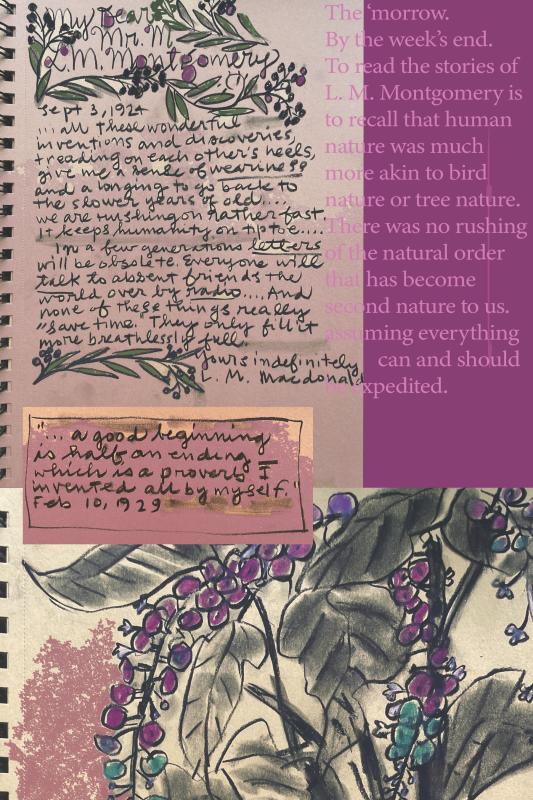 My Dear
Mr. M.
L.M. Montgomery
Sept 3, 1924
... all these wonderful
inventions and discoveries,
treading on each other's heels,
give me a sense of weariness
and a longing to go back to
the slower years of old....
we are rushing on rather fast.
It keeps humanity on tiptoe....
In a few generations letters
will be obsolete. Everyone will
talk to absent friends the
world over by radio.... And
none of these things really
"save time." They only fill it
more breathlessly full.
Yours indefinitely,
L. M. Macdonald
"... a good beginning
is half an ending
which is a proverb I
invented all by myself."
Feb 10, 1929
The ‘morrow.
By the week’s end.
To read the stories of
L. M. Montgomery is
to recall that human
nature was much
more akin to bird
nature or tree nature.
There was no rushing
of the natural order
that has become
second nature to us.
assuming everything
can and should
be expedited.